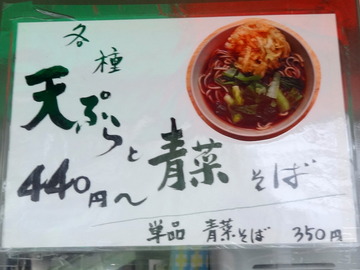 各種
天ぷらと青菜そば
440円〜
単品 青菜そば 350円